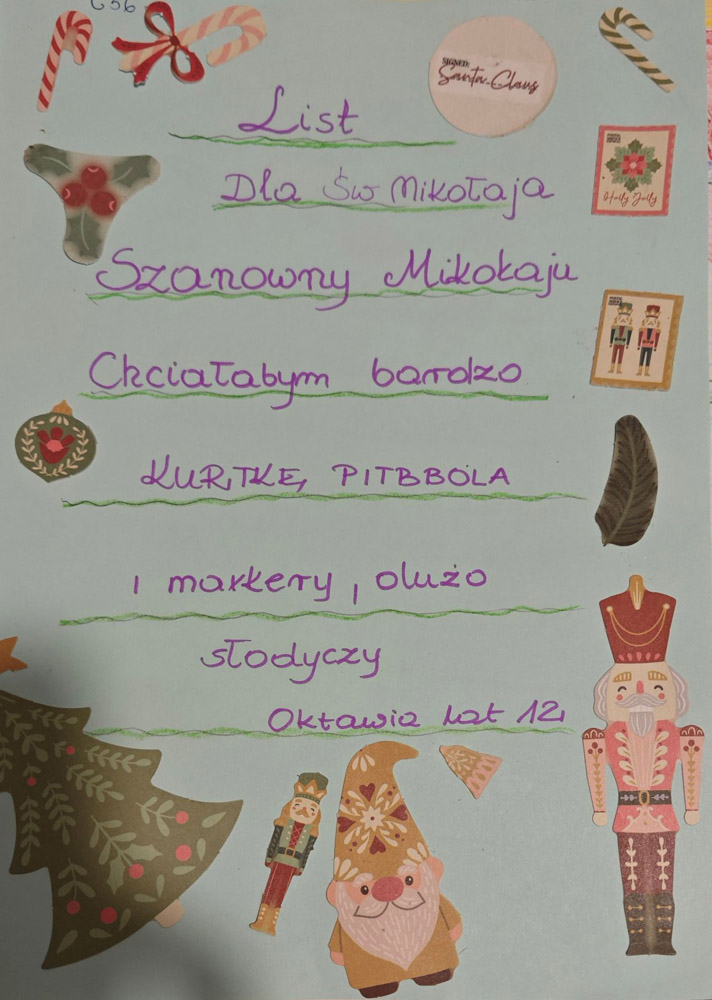 C56
SIGNED:
Santa Claus
List
Dla Św Mikołaja
Holly Jolly
Szanowny Mikołaju
Chciałabym bardzo
KURTKĘ PITBBOLA
i markery, dużo
słodyczy
Oktawia Lat 12